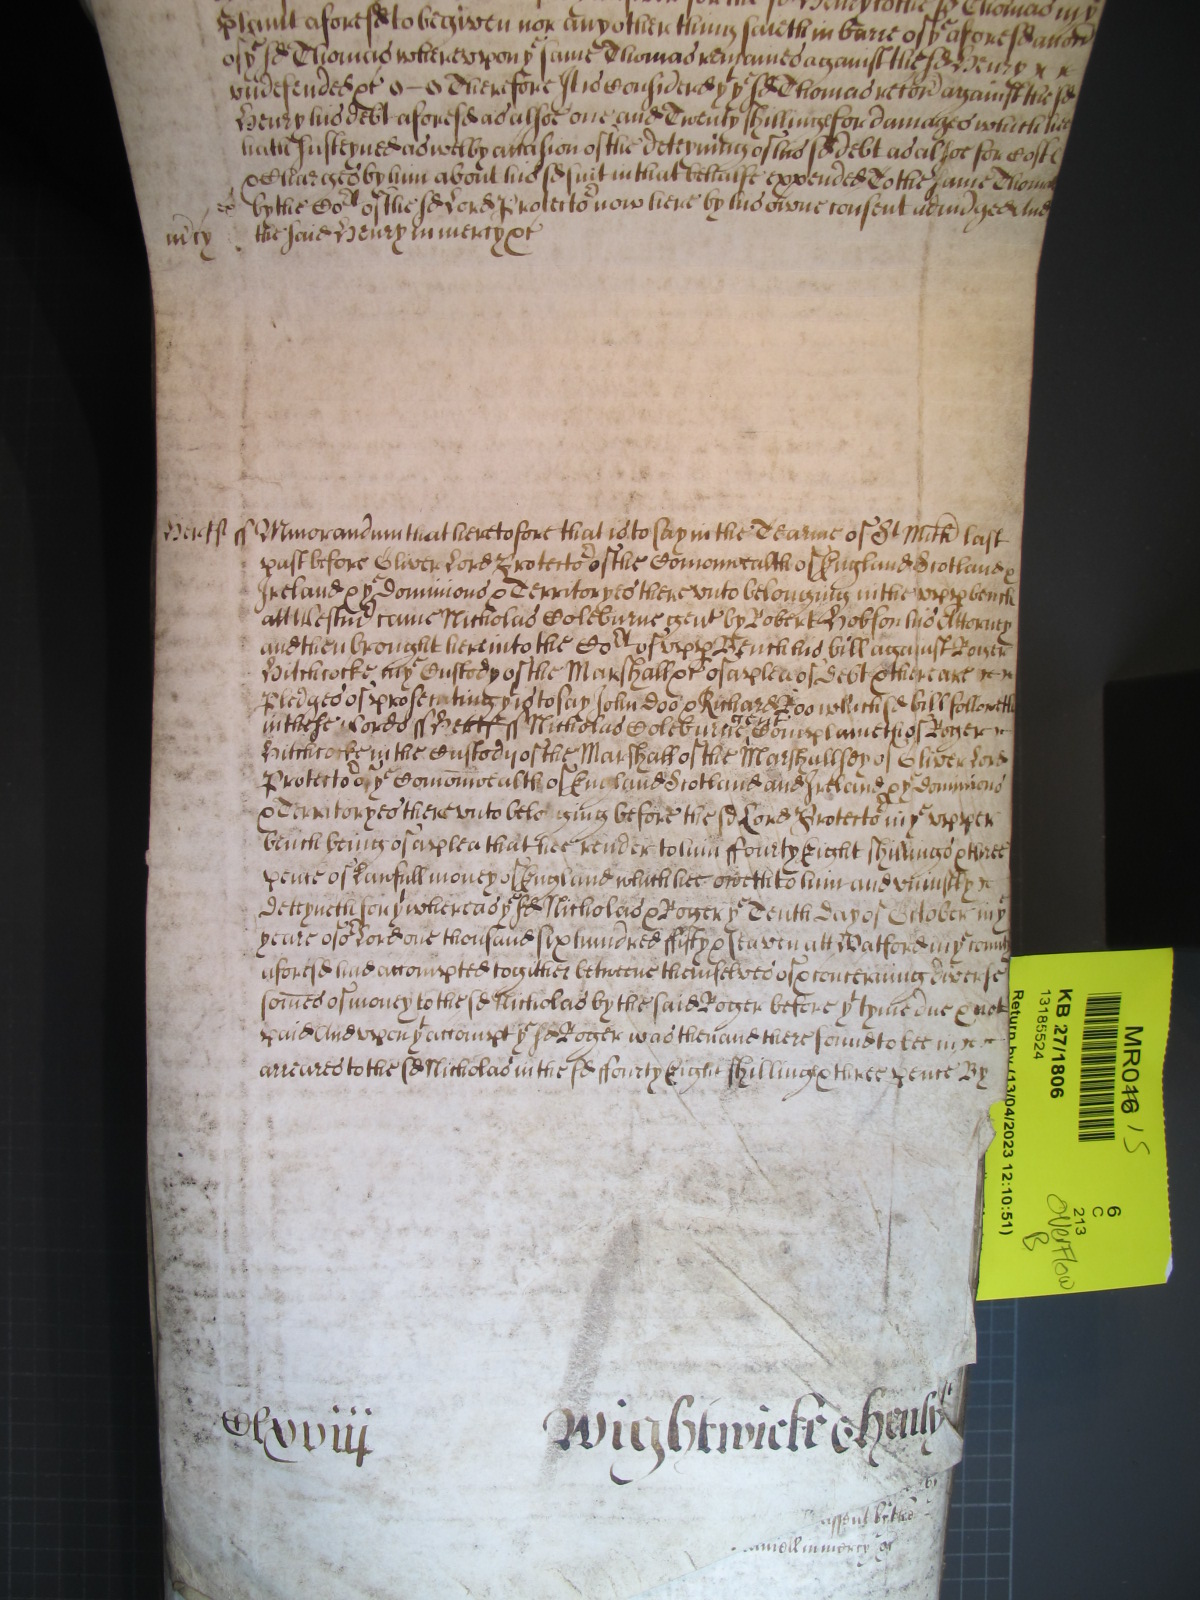 plaint aforesd to be given nor any other thing saieth in barre of ye aforesd accon
of ye sd Thomas whereupon ye same Thomas remaines against the sd Henry
undefended &c Therefore It is Considered yt ye sd Thomas recov against the sd
Henry his debt aforesd as alsoe one and Twenty shillings for damages which hee
hath susteyned as well by occasion of the deteyning of his sd debt as alsoe for Costs
& Charges by him about his sd suit in that behalfe expended To the same Thomas
by the Cort of the sd Lord Protector now here by his owne consent adiudged And
mcy the said Henry in mercy &c
Hertff ss Memorandum that heretofore that is to say in the Tearme of St Mich last
past before Oliver Lord Protector of the Comonwealth of England Scotland &
Ireland & ye Dominions & Territoryes thereunto belonging in the upp bench
att Westmr came Nicholas Coleburne gent by Robert Hobson his Attorney
and then brought here into the Cort of upp Bench his bill against Roger
Hitchcocke in ye Custody of the Marshall &c of a plea of debt & there are
Pledges of prosecuting yt is to say John Doo & Richard Roo which sd bill followeth
in these Words ss Hertff ss Nicholas Coleburne gent Complaineth of Roger
Hitchcocke in the Custody of the Marshall of the Marshallsey of Oliver Lord
Protector of ye Comonwealth of England Scotland and Ireland & ye Dominions
& Territoryes thereunto belonging before the sd Lord Protector in ye upper
bench being of a plea that hee render to him ffourty Eight shillings & three
pence of Lawfull money of England which hee oweth to him and uniustly
deteyneth for yt whereas ye sd Nicholas & Roger ye Tenth day of October in ye
yeare of or Lord one thousand six hundred fifty & seaven att Watford in ye county
aforesd had accompted together betweene themselves of & concerning diverse
somes of money to the sd Nicholas by the said Roger before yt tyme due & not
paid And upon yt accompt ye sd Roger was then and there found to bee in
arreares to the sd Nicholas in the sd ffourty Eight shillings & three pence By
Clxviij
Wightwicke & Henly
assent by the
in mercy &c
MR046 / 5
KB 27/1806
13185524
Return by (13/04/2023 12:10:51)
6
C
213
OVERFLOW
B